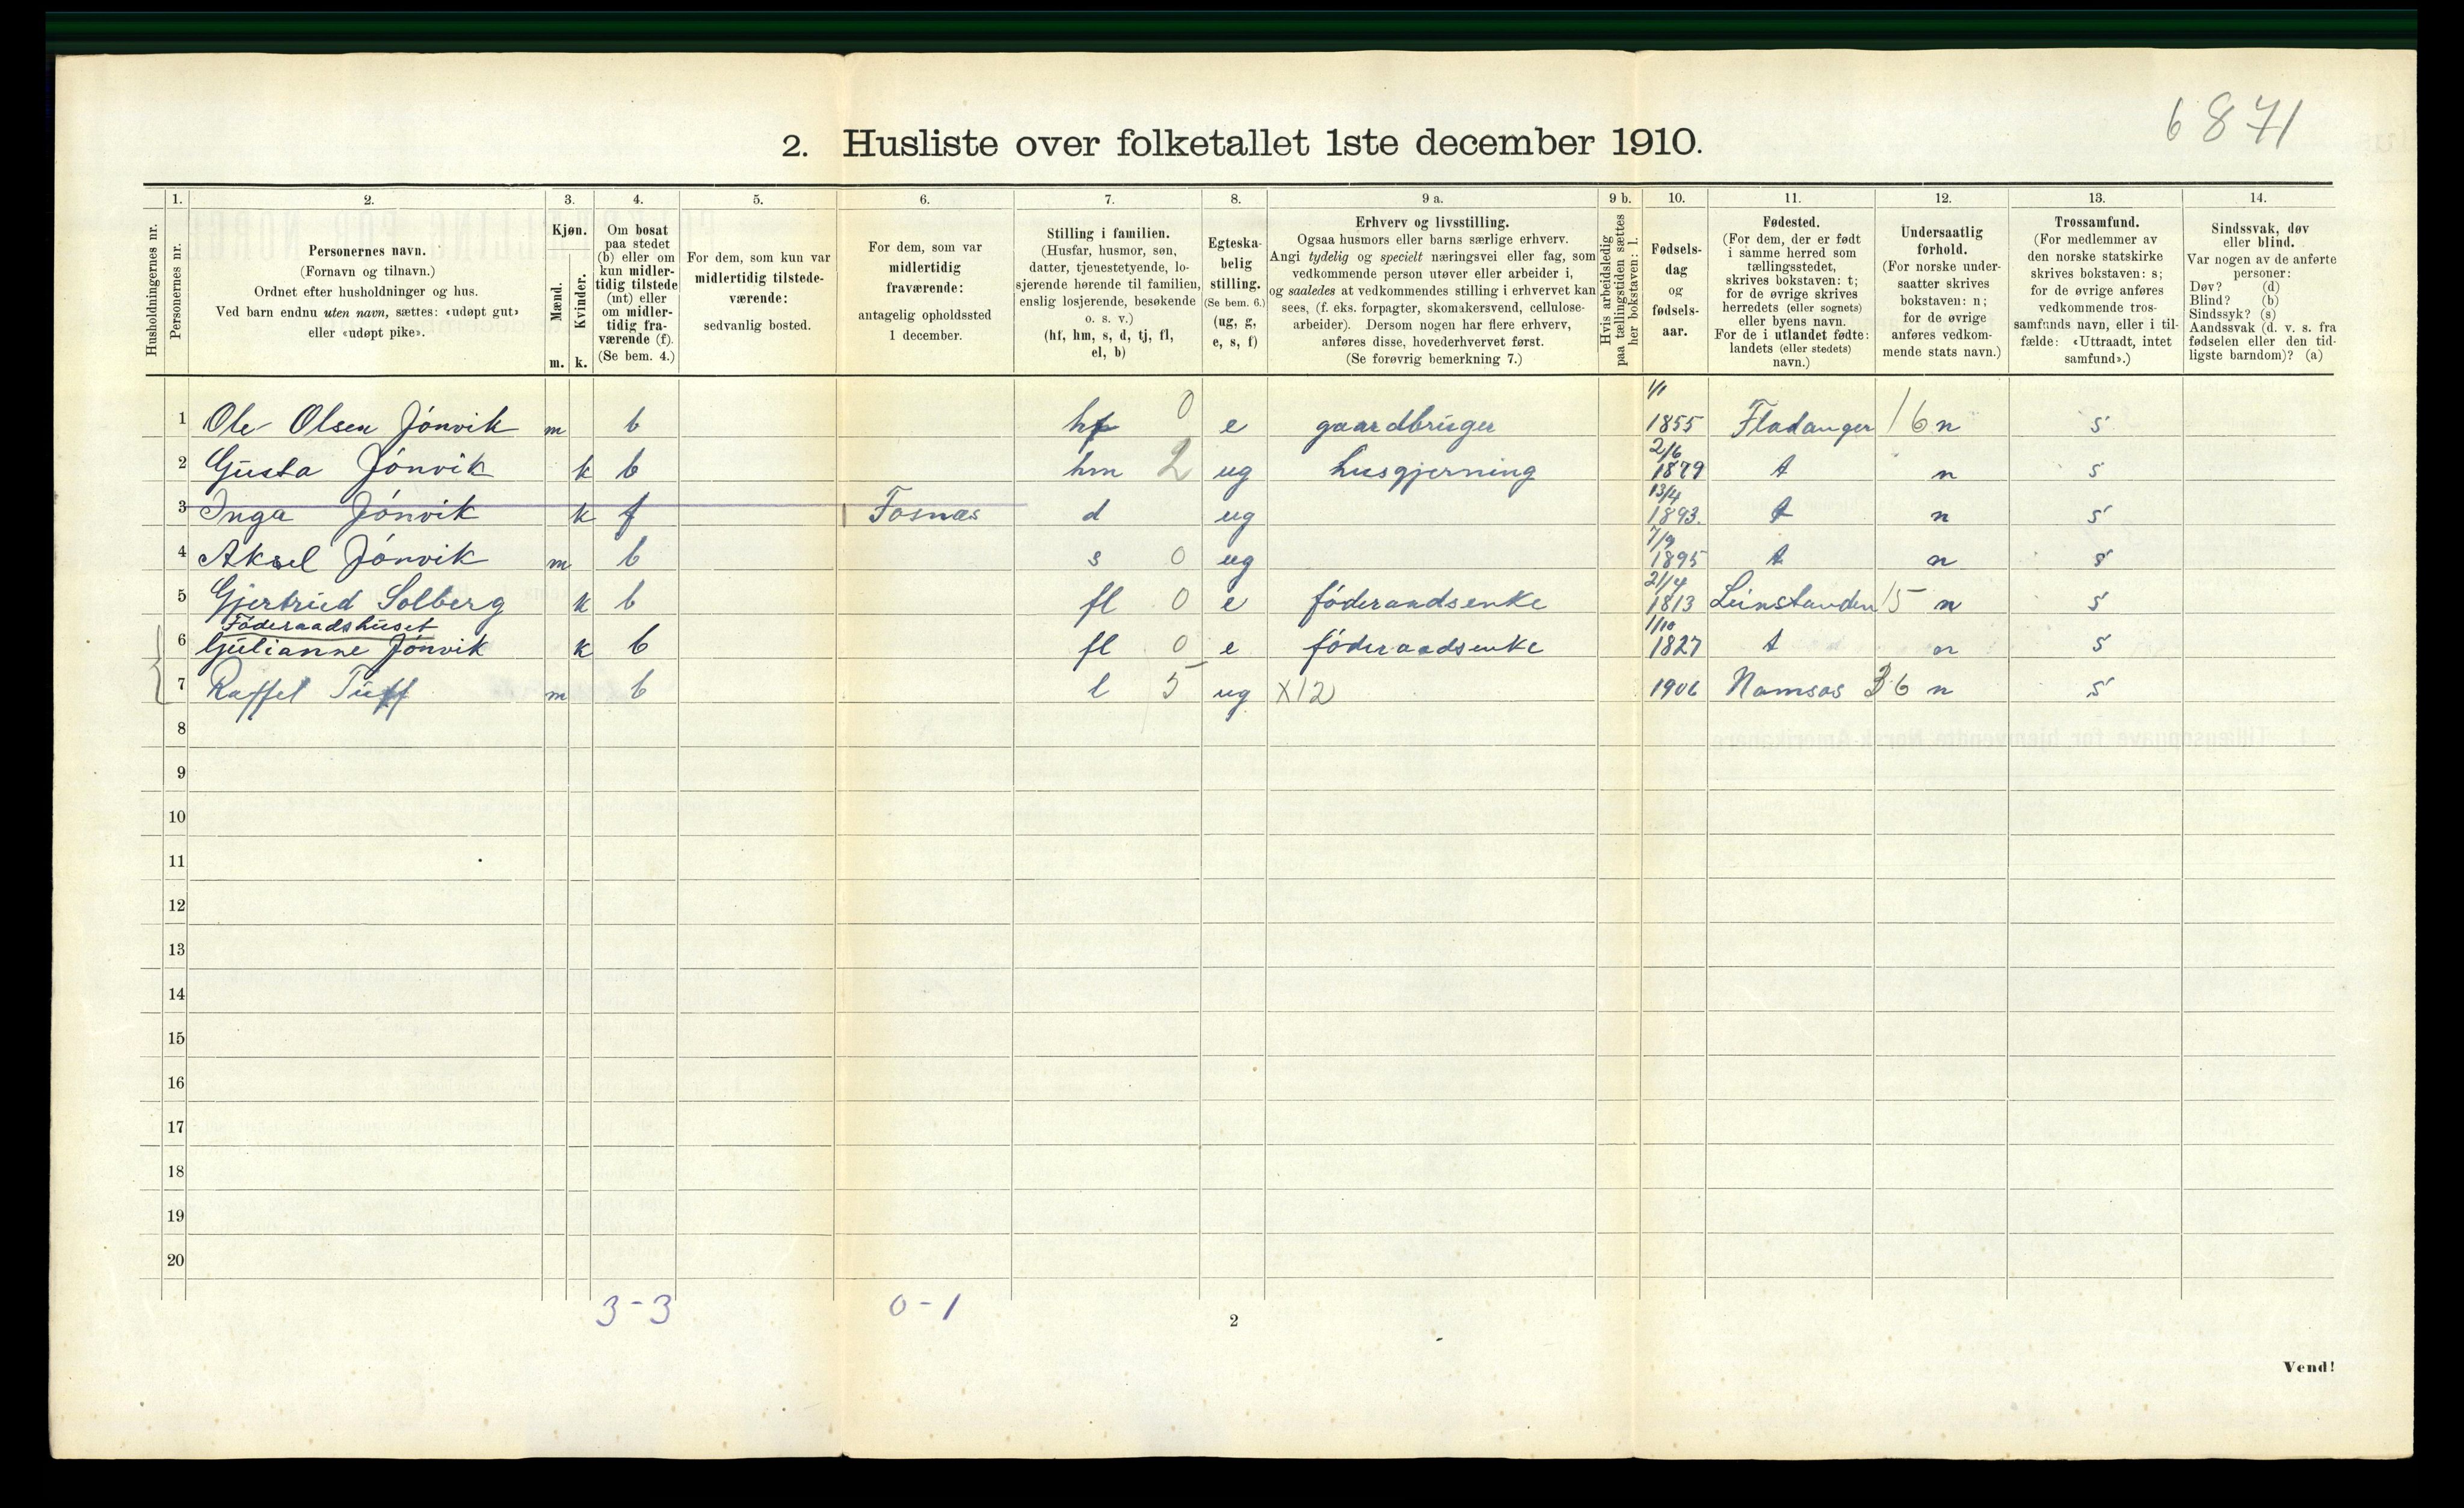 6871
2. Husliste over folketallet 1ste december 1910.
1. 2. 3. 4. 5. 6. 7. 8. 9 a. 9 b. 10. 11. 12. 13. 14.
Husholdningernes nr.
Personernes nr.
Personernes navn.
(Fornavn og tilnavn.)
Ordnet efter husholdninger og hus.
Ved barn endnu uten navn, sættes: «udøpt gut»
eller «udøpt pike».
Kjøn.
Mænd.
Kvinder.
m. k.
Om bosat
paa stedet
(b) eller om
kun midler-
tidig tilstede
(mt) eller
om midler-
tidig fra-
værende (f).
(Se bem. 4.)
For dem, som kun var
midlertidig tilstede-
værende:
sedvanlig bosted.
For dem, som var
midlertidig
fraværende:
antagelig opholdssted
1 december.
Stilling i familien.
(Husfar, husmor, søn,
datter, tjenestetyende, lo-
sjerende hørende til familien,
enslig losjerende, besøkende
o. s. v.)
(hf, hm, s, d, tj, fl,
el, b)
Egteska-
belig
stilling.
(Se bem. 6.)
(ug, g,
e, s, f)
Erhverv og livsstilling.
Ogsaa husmors eller barns særlige erhverv.
Angi tydelig og specielt næringsvei eller fag, som
vedkommende person utøver eller arbeider i,
og saaledes at vedkommendes stilling i erhvervet kan
sees, (f. eks. forpagter, skomakersvend, cellulose-
arbeider). Dersom nogen har flere erhverv,
anføres disse, hovederhvervet først.
(Se forøvrig bemerkning 7.)
Hvis arbeidsledig
paa tællingstiden sættes
her bokstaven: l.
Fødsels-
dag
og
fødsels-
aar.
Fødested.
(For dem, der er født
i samme herred som
tællingsstedet,
skrives bokstaven: t;
for de øvrige skrives
herredets (eller sognets)
eller byens navn.
For de i utlandet fødte:
landets (eller stedets)
navn.)
Undersaatlig
forhold.
(For norske under-
saatter skrives
bokstaven: n;
for de øvrige
anføres vedkom-
mende stats navn.)
Trossamfund.
(For medlemmer av
den norske statskirke
skrives bokstaven: s;
for de øvrige anføres
vedkommende tros-
samfunds navn, eller i til-
fælde: «Uttraadt, intet
samfund».)
Sindssvak, døv
eller blind.
Var nogen av de anførte
personer:
Døv? (d)
Blind? (b)
Sindssyk? (s)
Aandssvak (d. v. s. fra
fødselen eller den tid-
ligste barndom)? (a)
1 Ole Olsen Jónvik m b hf 0 e gaardbruger 1/1 1855 Fladanger 16 n s
2 Gusta Jónvik k b hm 2 ug husgjerning 2/6 1879 t n s
3 Inga Jónvik k f Fosnæs d ug 13/4 1893. t n s
4 Aksel Jónvik m b s 0 ug 7/9 1895 t n s
5 Gjertrud Solberg k b fl 0 e föderaadsenke 21/4 1813 Leinstanden 15 n s
Föderaadshuset
6 Gulianne Jónvik k b fl 0 e föderaadsenke 1/10 1827 t n s
7 Raffel Tuff m b l 5 ug X12 1906 Namsos 36 n s
8
9
10
11
12
13
14
15
16
17
18
19
20
3-3 0-1
2
Vend!